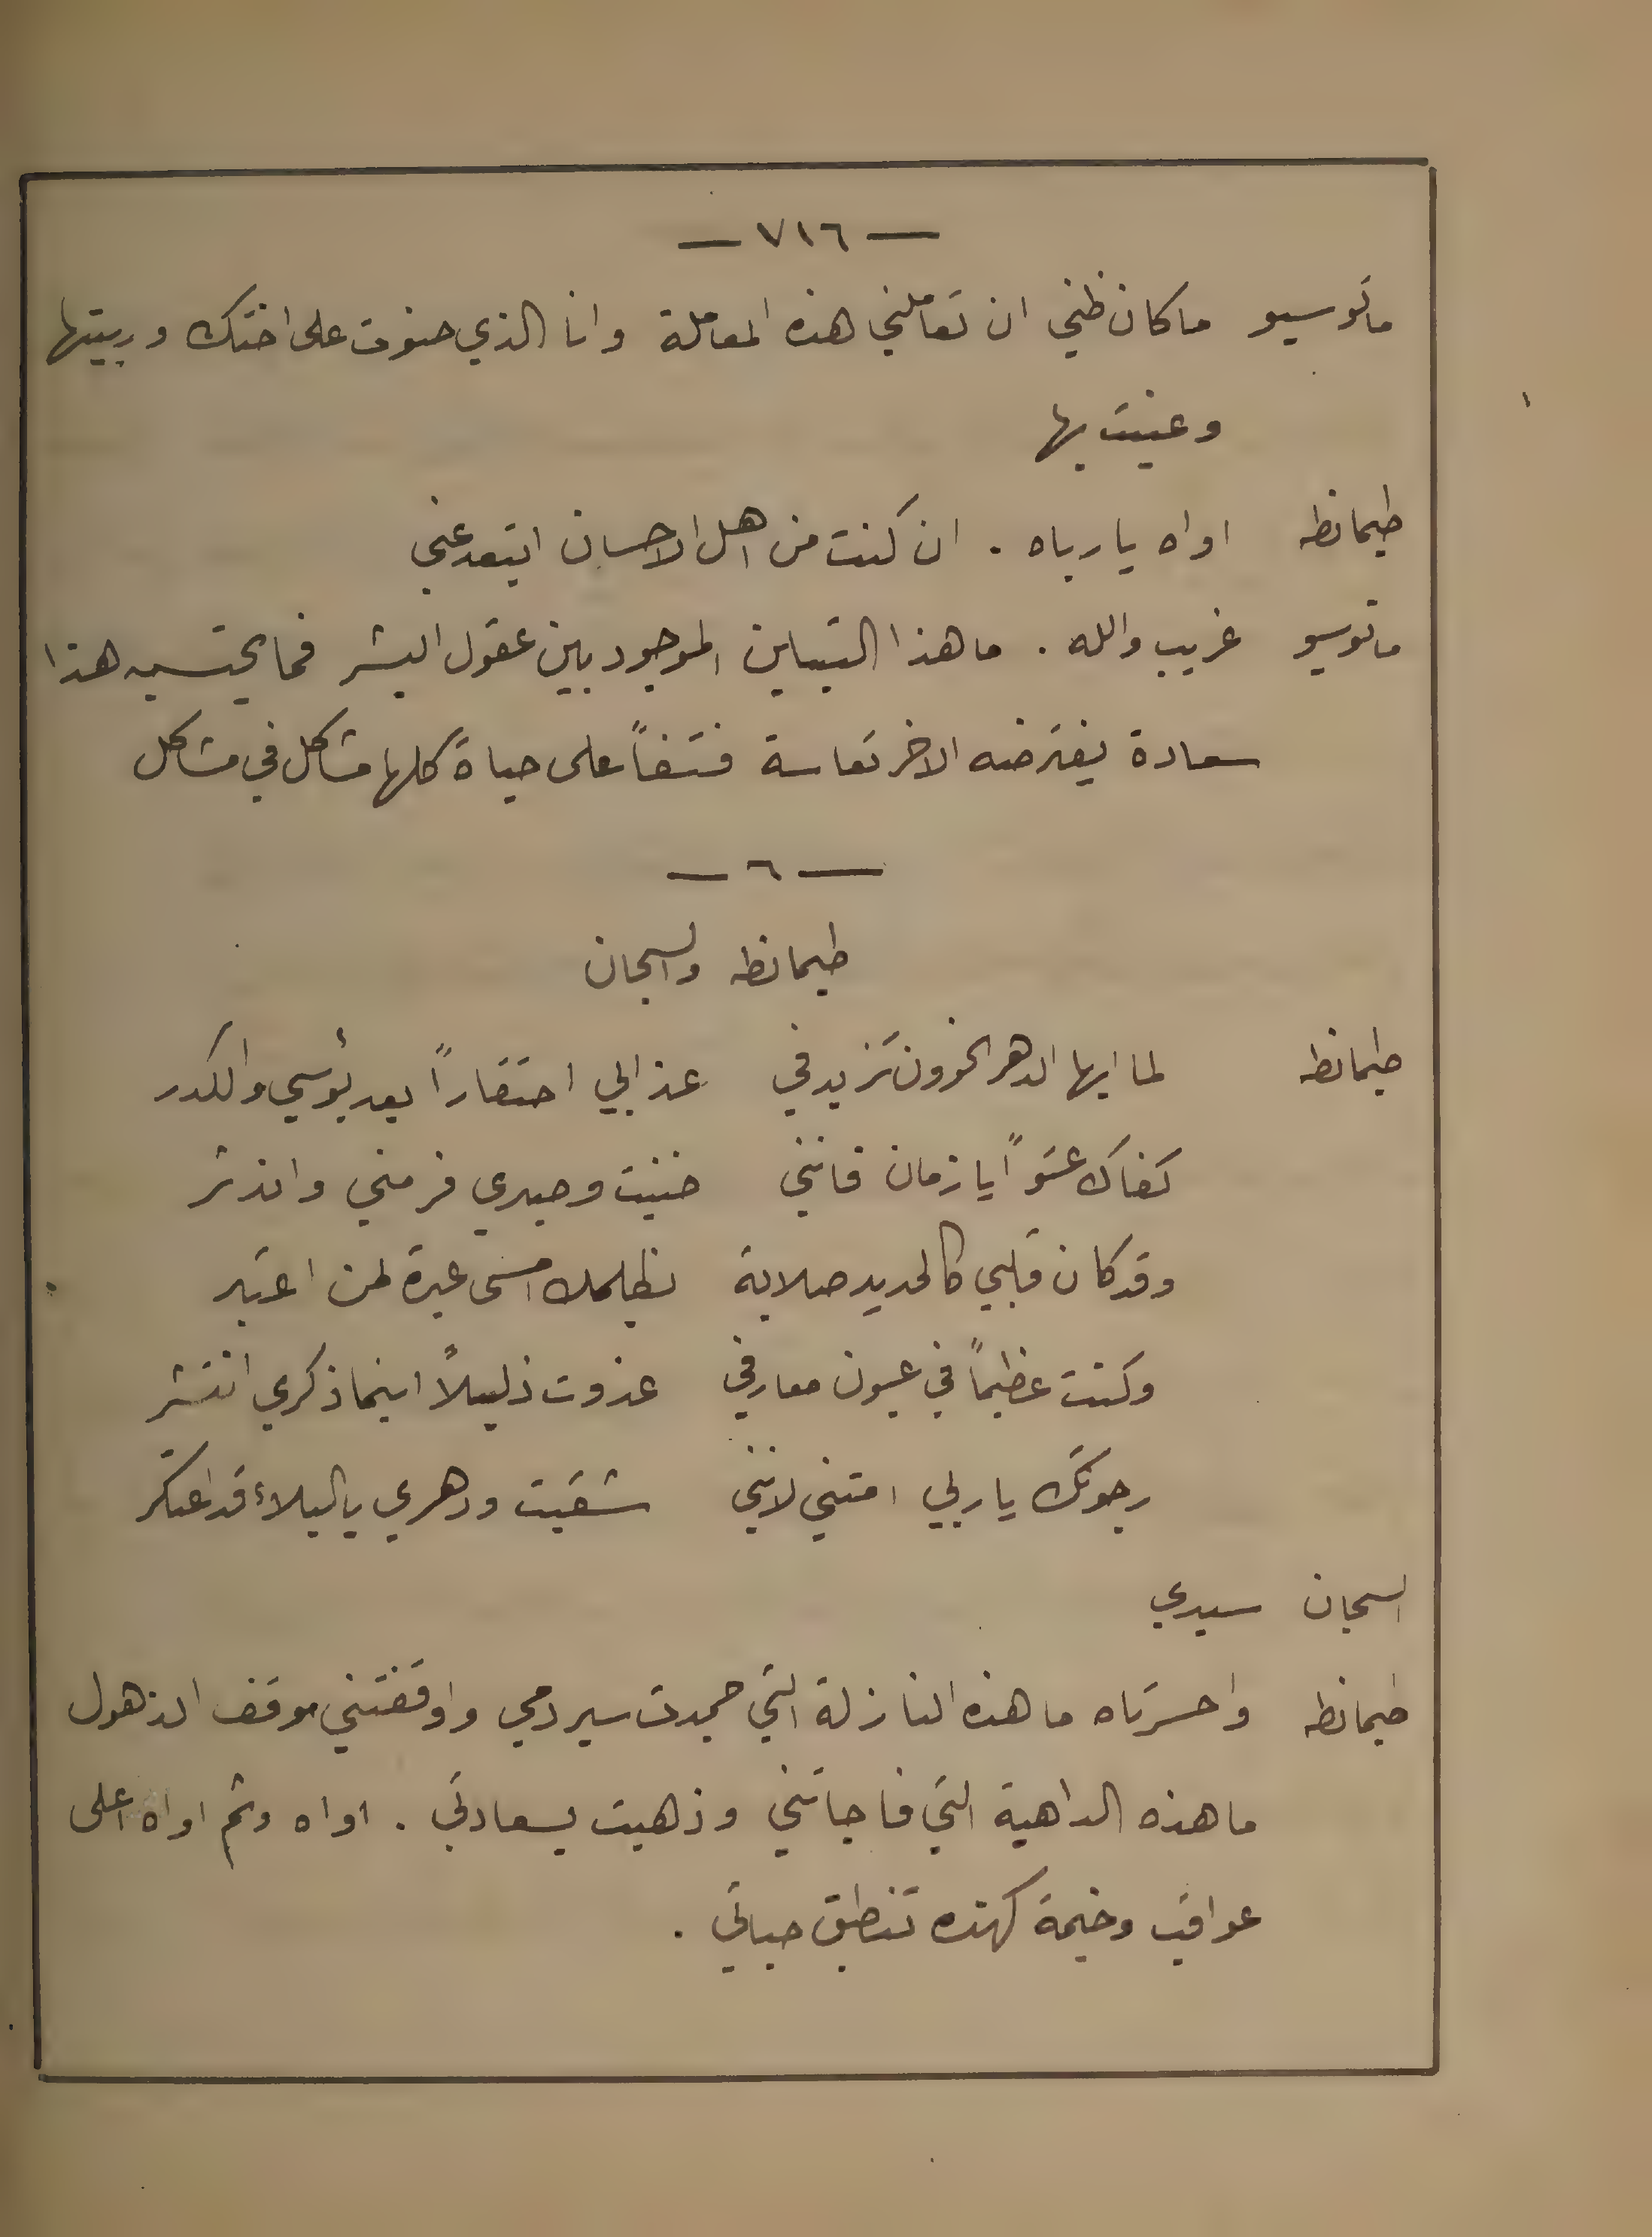 — ٧١٦ —
ماتوسيو ما كان ظني ان تعاملني هذه المعاملة وانا الذي حنوت على اختك وربيتها
وعنيت بها
طيمانظه اواه يا رباه . ان كنت من اهل الاحسان ابتعد عني
ماتوسيو غريب والله . ما هذا التباين الموجود بين عقول البشر فما يحتسبه هذا
سعادة يفترضه الاخر تعاسة فتنشأ على حياة كلها مشاكل في مشاكل
— ٦ —
طيمانظه والسجان
طيمانظه لما ايها الدهر الخوون تزيد في عذابي احتقاراً بعد بؤسي والكدر
كفاك عتواً يا زمان فانني فنيت وصبري فر مني واندثر
وقد كان قلبي كالحديد صلابة بظلمك امسى عبرة لمن اعتبر
وكنت عظيماً في عيون معارفي غدوت ذليلاً اينما ذكري انتشر
رجوتك يا ربي امتني لانني شقيت ودهري بالبلاء قد اعتكر
السجان سيدي
طيمانظه واحسرتاه ما هذه النازلة التي جمدت سير دمي واوقفتني موقف الذهول
ما هذه الداهية التي فاجاتني وذهبت بسعادتي . اواه وثم اواه أعلى
عواقب وخيمة كهذه تنطبق حياتي .